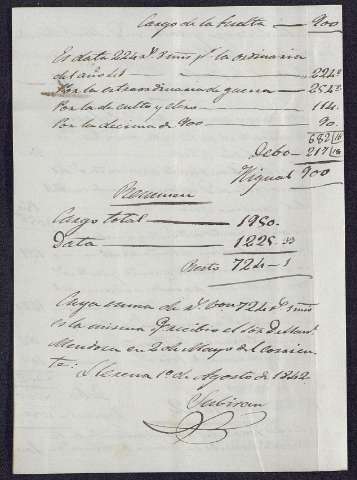 Cargo de la vuelta — 900
Es data 224 r.s 3 mrs p.r la ordinaria
del año 41 — 224 "
Por la extraordinaria de guerra — 254 "
Por la de culto y clero — 114.
Por la decima de 900 — 90.
682 | 16
Debo — 217 | 18
Yigual 900
Resumen
Cargo total — 1950.
Data — 1225 . 33
Resto 724 - 1
Cuya suma de r.s von 724 r.s 1 mrs
es la misma q.e recibio el
Mendoza en 2 de Mayo del corrien
te:
Llerena 1.o de Agosto de 1842